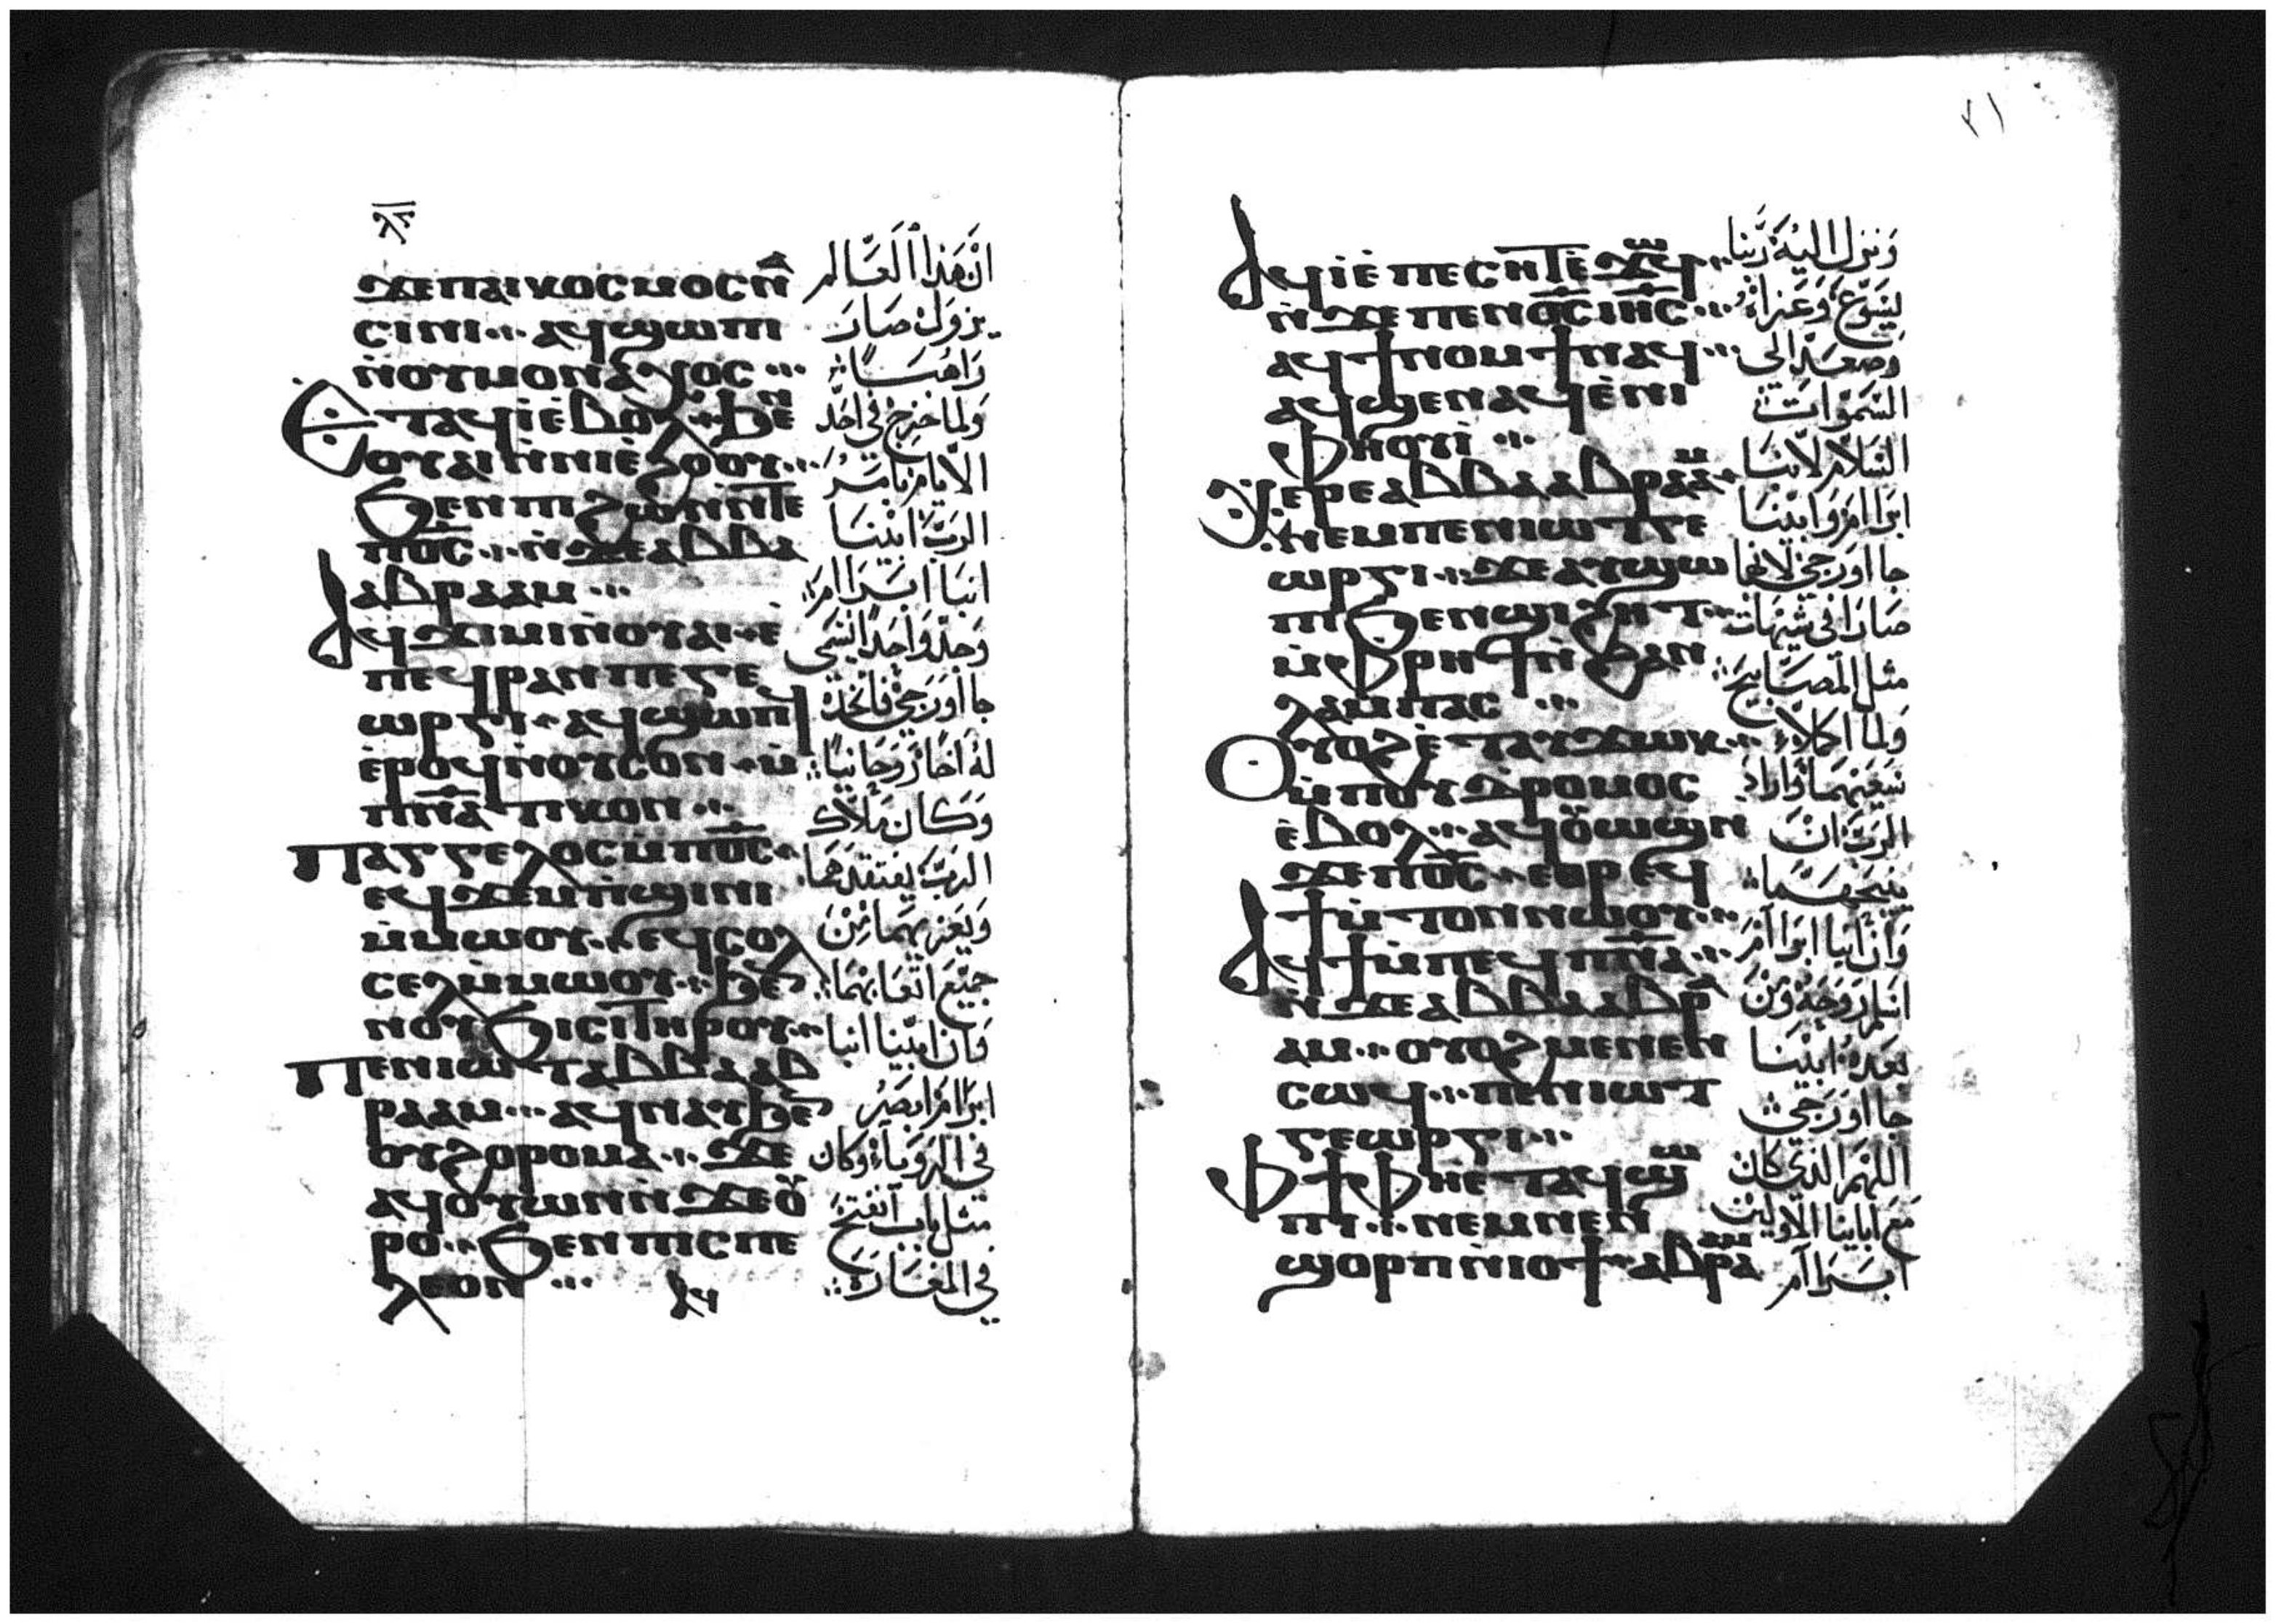 ϫⲉⲡⲁⲓⲕⲟⲥⲙⲟⲥⲛⲁ
ⲥⲓⲛⲓ ⲁϥϣⲱⲡⲓ
ⲛ̀ⲟⲩⲙⲟⲛⲁⲭⲟⲥ
Ⲉⲧⲁϥⲓ̀ⲉ̀ⲃⲟⲗ ϧⲉⲛ
ⲟⲩⲁⲓⲛ̀ⲛⲓⲉ̀ϩⲟⲟⲩ
ϧⲉⲛⲡⲓϩⲱⲛⲛ̀ⲧⲉ
ⲡⲟ̅ⲥ̅ ⲛ̀ϫⲉⲁⲃⲃⲁ
ⲁⲃⲣⲁⲁⲙ
Ⲁϥϫⲓⲙⲓⲛ̀ⲟⲩⲁⲓ ⲉ̀
ⲡⲉϥⲣⲁⲛⲡⲉⲅⲉ
ⲱⲣⲅⲓ ⲁϥϣⲱⲡⲓ
ⲉ̀ⲣⲟϥⲛ̀ⲟⲩⲥⲟⲛ ⲙ̀
ⲡⲛ̅ⲁ̅ⲧⲓⲕⲟⲛ
Ⲡⲁⲅⲅⲉⲗⲟⲥⲙ̀ⲡⲟ̅ⲥ̅
ⲉϥϫⲉⲙⲡ̀ϣⲓⲛⲓ
ⲙ̀ⲙⲱⲟⲩ ⲉϥⲥⲟⲗ
ⲥⲉⲗⲙ̀ⲙⲱⲟⲩ ϧⲉⲛ
ⲛⲟⲩϧⲓⲥⲓⲧⲏⲣⲟⲩ
Ⲡⲉⲛⲓⲱⲧⲁⲃⲃⲁⲁⲃ
ⲣⲁⲁⲙ ⲁϥⲛⲁⲩϧⲉⲛ
ⲟⲩϩⲟⲣⲟⲙⲁ ϫⲉ
ⲁϥⲟⲩⲱⲛⲛ̀ϫⲉⲟⲩ
ⲣⲟ ϧⲉⲛⲡⲓⲥⲡⲉ
ⲗⲉⲟⲛ
ⲁϥ
انّ هذا العالم
يزول صار
راهباً
ولما خرج في احد
الايام بامر
الرب ابينا
انبا ابراام
وجد واحداً يسمى
جااورجي فاتخذه
له اخاً روحانياً
وكان ملاك
الرب يفتقدهما
ويعزيهما من
جميع اتعابهما
فان ابينا انبا
ابراام ابصر
في الرويا وكان
مثل باب انفتح
في المغارة
٢١
Ⲁϥⲓ̀ⲉ̀ⲡⲉⲥⲏⲧⲉ̀ϫⲱϥ
ⲛ̀ϫⲉⲡⲉⲛⲟ̅ⲥ̅ ⲓⲏ̅ⲥ̅
ⲁϥϯⲛⲟⲙϯⲛⲁϥ
ⲁϥϣⲉⲛⲁϥⲉ̀ⲛⲓ
ⲫⲏⲟⲩⲓ̀
Ⲭⲉⲣⲉⲁⲃⲃⲁⲁⲃⲣⲁⲁⲙ
ⲛⲉⲙⲡⲉⲛⲓⲱⲧⲅⲉ
ⲱⲣⲅⲓ ϫⲉⲁⲩϣⲱ
ⲡⲓϧⲉⲛϣⲓϩⲏⲧ
ⲙ̀ⲫⲣⲏϯⲛ̀ϩⲁⲛ
ⲗⲁⲙⲡⲁⲥ
Ⲟⲩⲟϩⲉ̀ⲧⲁⲩϫⲱⲕ
ⲙ̀ⲡⲟⲩⲇⲣⲟⲙⲟⲥ
ⲉ̀ⲃⲟⲗ ⲁϥⲟⲩⲱϣⲛ
ϫⲉⲡⲟ̅ⲥ̅ ⲉⲑⲣⲉϥ
ϯⲙ̀ⲧⲟⲛⲛⲱⲟⲩ
Ⲁϥϯⲙ̀ⲡⲉϥⲡⲛ̅ⲁ̅
ⲛ̀ϫⲉⲁⲃⲃⲁⲁⲃⲣⲁ
ⲁⲙ ⲟⲩⲟϩⲙⲉⲛⲉⲛ
ⲥⲱϥ ⲡⲉⲛⲓⲱⲧ
ⲅⲉⲱⲣⲅⲓ
Ⲫϯⲫⲏⲉ̀ⲧⲁϥϣⲱ
ⲡⲓ ⲛⲉⲙⲛⲉⲛ
ϣⲟⲣⲡⲛ̀ⲓⲟϯ ⲁⲃⲣⲁⲁⲙ
ونزل اليه ربنا
يسوع وعزاه
وصعد الى
السموات
السلام لابينا
ابراام وابينا
جااورجي لانهما
صارا في شيهات
مثل المصابيح
ولما اكملا
سعيهما اراد
الرب ان
ينيحهما
وان انبا ابراام
اسلم روحه ومن
بعده ابينا
جااورجي
اللهم الذي كان
مع ابايينا الاولين
ابراام